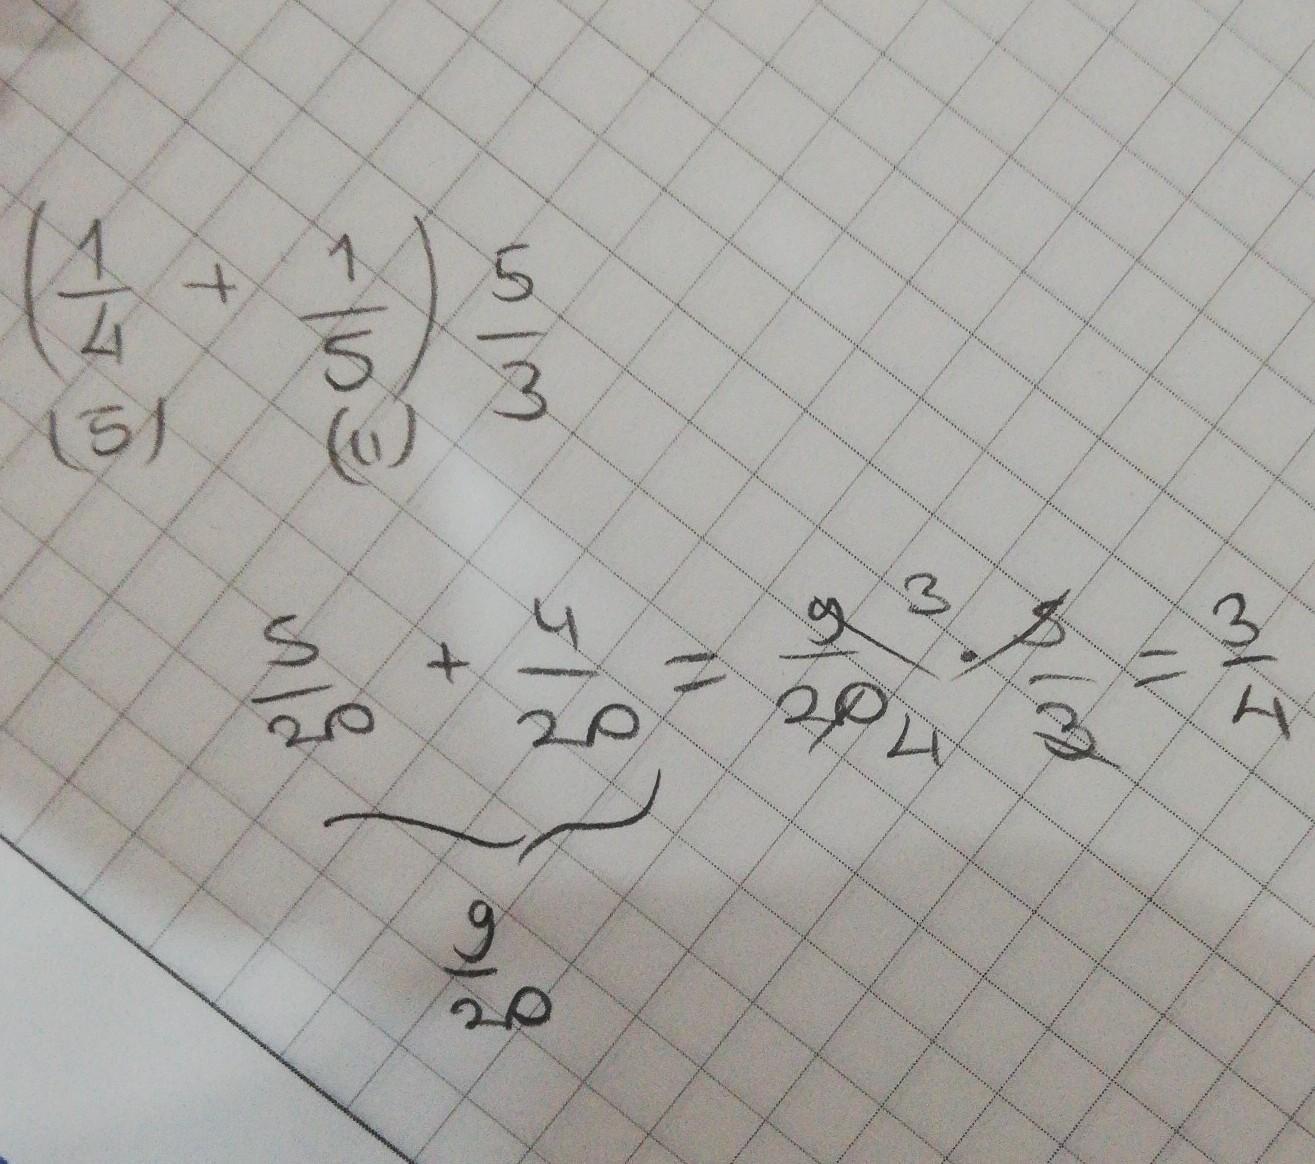 (1/4 + 1/5) 5/3
(5) (4)
5/20 + 4/20 = 9/20 3 4 · 5/3 = 3/4
9/20